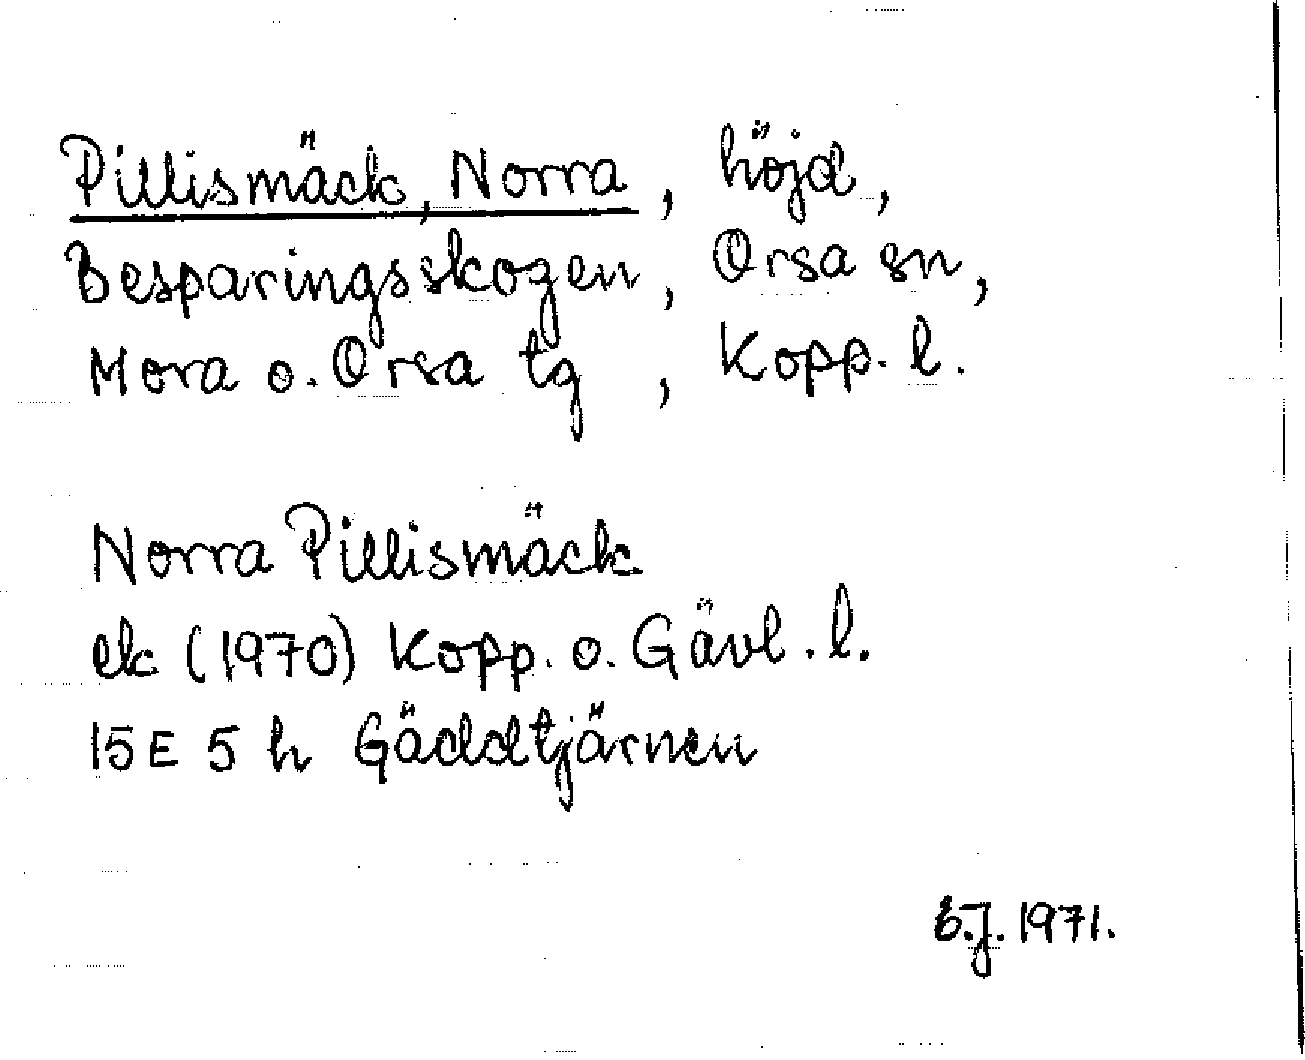 Pillismäck, Norra, höjd,
Besparingsskogen, Orsa sn,
Mora o. Orsa tg, Kopp. l.
Norra Pillismäck
ek (1970) Kopp. o. Gävl. l.
15E 5 h Gäddtjärnen
E.J. 1971.